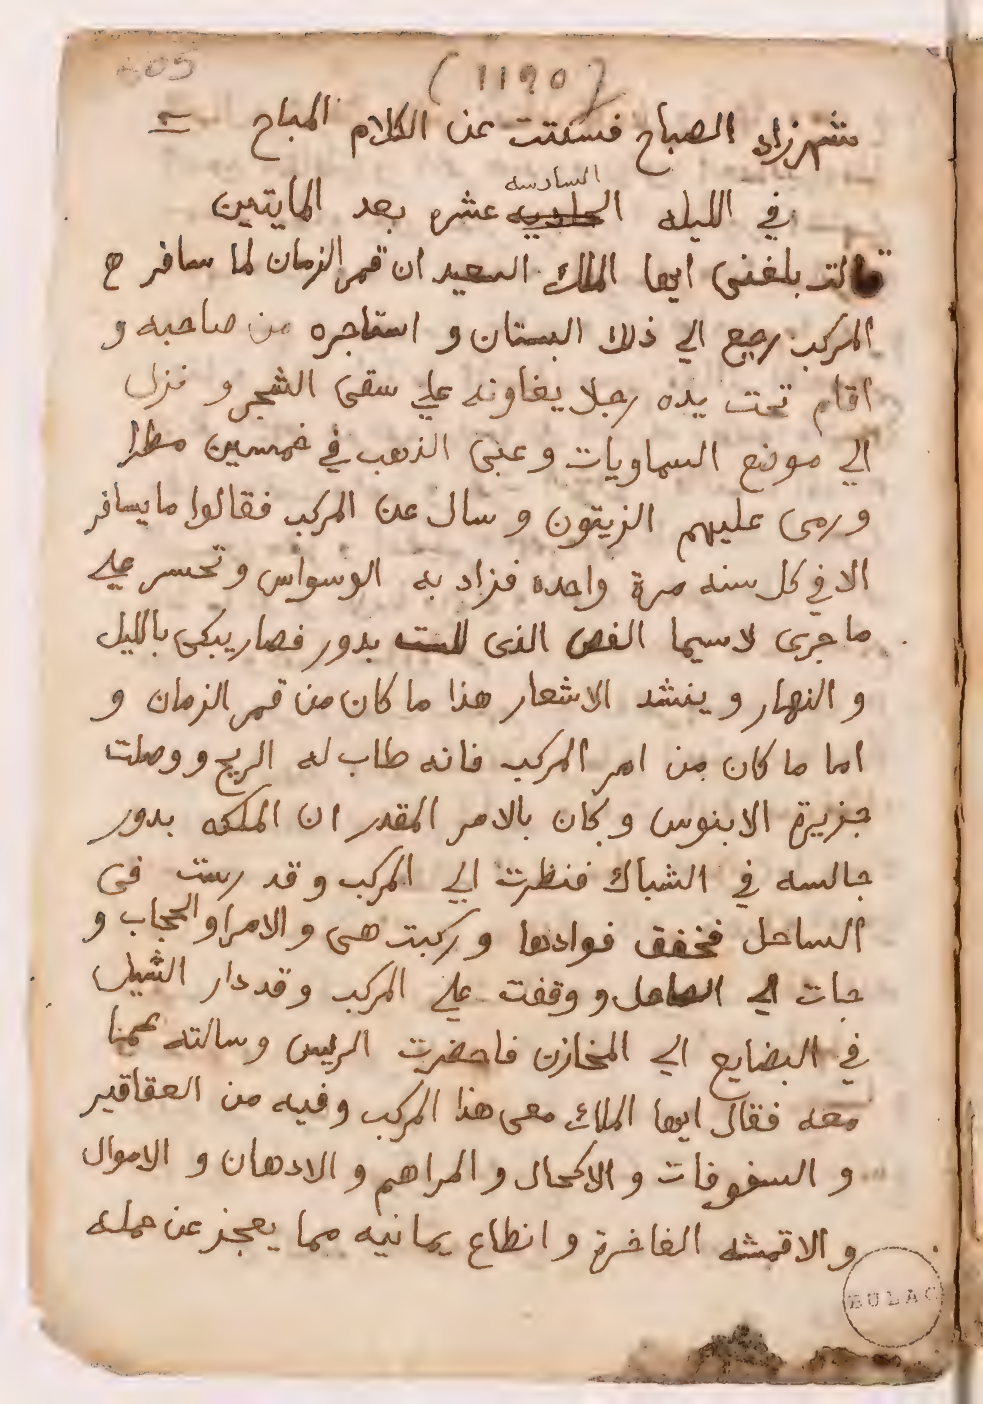 405
(1190)
شهرزاد الصباح فسكتت عن الكلام المباح
السادسه
في الليله الحاديه عشره بعد المايتين
قالت بلغنى ايها الملك السعيد ان قمر الزمان لما سافر ح
المركب رجع الي ذلك البستان و استاجره من صاحبه و
اقام تحت يده رجلا يغاونه علي سقى الشجر و نزل
الي موضع السماويات و عبى الذهب في خمسين مطرا
و رمى عليهم الزيتون و سال عن المركب فقالوا ما يسافر
الا في كل سنه مرة واحده فزاد به الوسواس و تحسر علي
ما جرى لاسيما الفص الذى للست بدور فصار يبكى بالليل
و النهار و ينشد الاشعار هذا ما كان من قمر الزمان و
اما ما كان من امر المركب فانه طاب له الريح و وصلت
جزيرة الابنوس و كان بالامر المقدر ان الملكه بدور
جالسه في الشباك فنظرت الي المركب و قد رست فى
الساحل فخفق فوادها و ركبت هى و الامرا و الحجاب و
جات الي الساحل و وقفت علي المركب و قد دار الشيل
في البضايع الي المخازن فاحضرت الريس و سالته عمنا
معه فقال ايها الملك معى هذا المركب و فيه من العقاقير
و السفوفات و الاكحال و المراهم و الادهان و الاموال
و الاقمشه الفاخرة و انطاع يمانيه مما يعجز عن حمله
BULAC